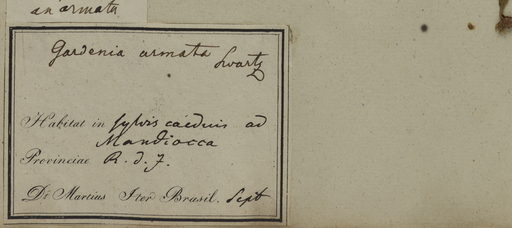 an armata
Gardenia armata Swartz
Habitat in sylvis caeduis ad
Mandiocca
Provinciae R. d. J.
Dr. Martius Iter Brasil. Sept